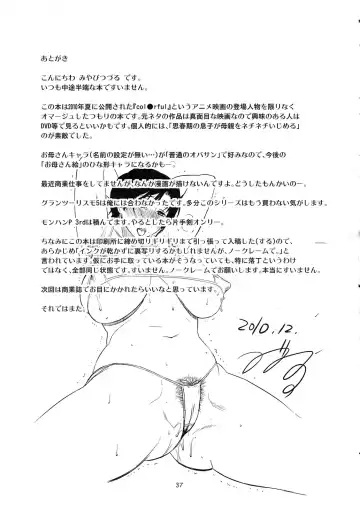 あとがき
こんにちわ みやびつづる です。
いつも中途半端な本ですいません。
この本は2010年夏に公開された『col●rful』というアニメ映画の登場人物を限りなく
オマージュしたつもりの本です。元ネタの作品は真面目な映画なので興味のある人は
DVD等で見るといいかもです。個人的には、「思春期の息子が母親をネチネチいじめる」
のが素敵でした。
お母さんキャラ(名前の設定が無い…)が「普通のオバサン」で好みなので、今後の
「お母さん絵」のひな形キャラになるかも―。
最近商業仕事をしてませんが、なんか漫画が描けないんですよ。どうしたもんかいの―。
グランツーリスモ5は俺には合わなかったです。多分このシリーズはもう買わない気がします。
モンハンP 3rdは積んでます。やるとしたら片手剣オンリー。
ちなみにこの本は印刷所に締め切りギリギリまで引っ張って入稿した(する)ので、
あらかじめ「インクが乾かずに裏写りするかもしれませんが、ノークレームで。」と
言われています。仮にお手に取っている本がそうなっていても、特に落丁というわけ
ではなく、全部同じ状態です。すいません。ノークレームでお願いします。本当にすいません。
次回は商業誌でお目にかかれたらいいなと思っています。
それではまた。
2010.12.
37